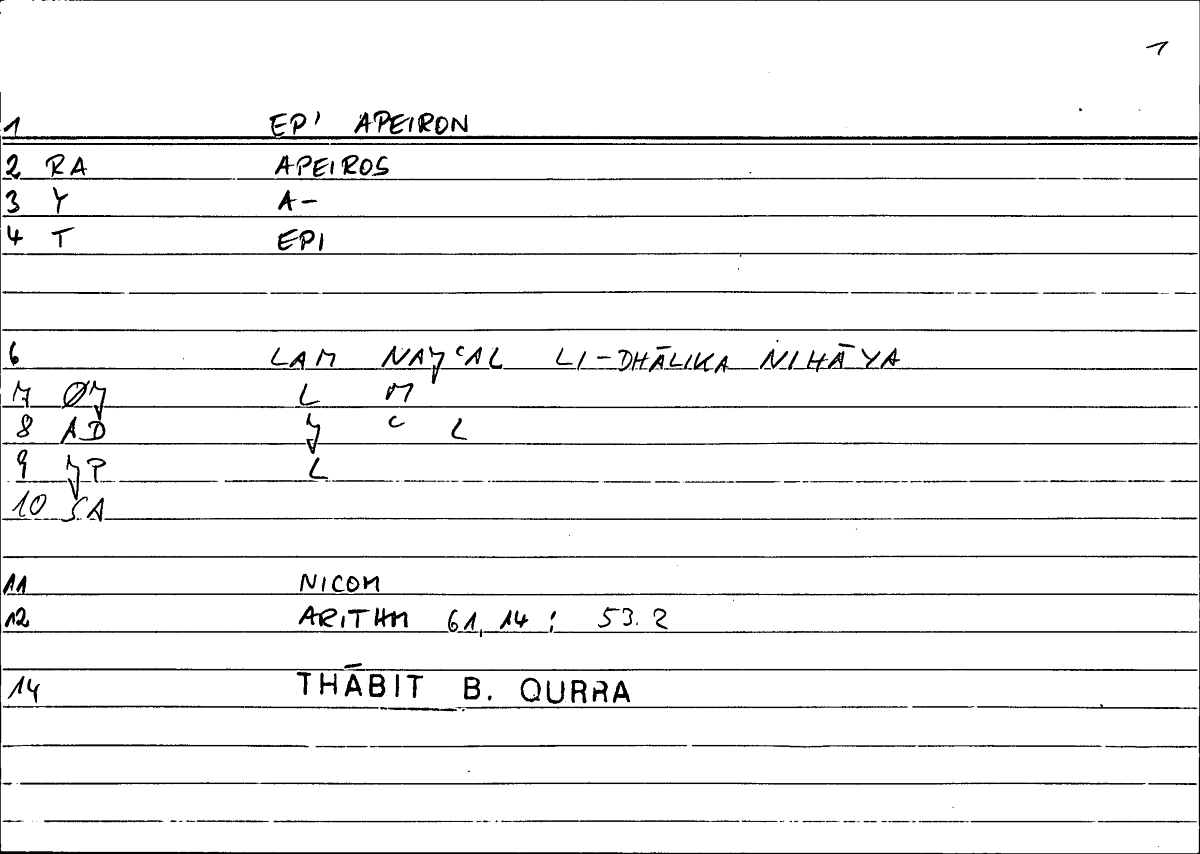 1
1 EP' APEIRON
2 RA APEIROS
3 Y A-
4 T EPI
6 LAM NAJʿAL LI-DHĀLIKA NIHĀYA
7 ØJ L M
8 AD J ʿ L
9 JP L
10 SA
11 NICOM
12 ARITHM 61,14 : 53.2
14 THĀBIT B. QURRA